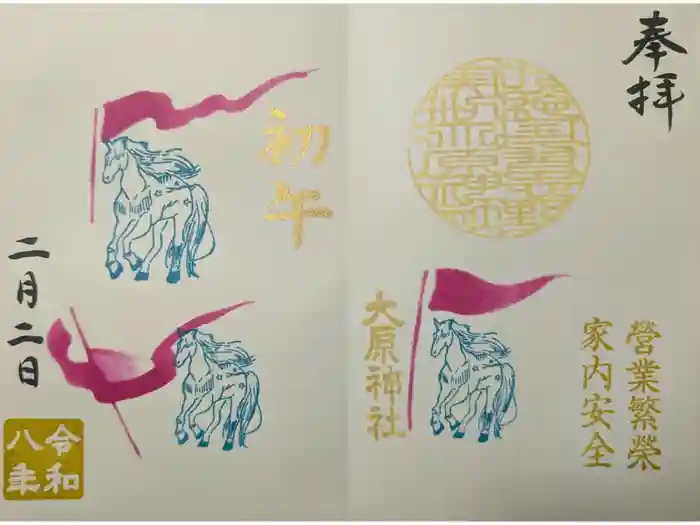 奉拝
營業繁榮
家内安全
大原神社
初午
二月二日
令和
八年